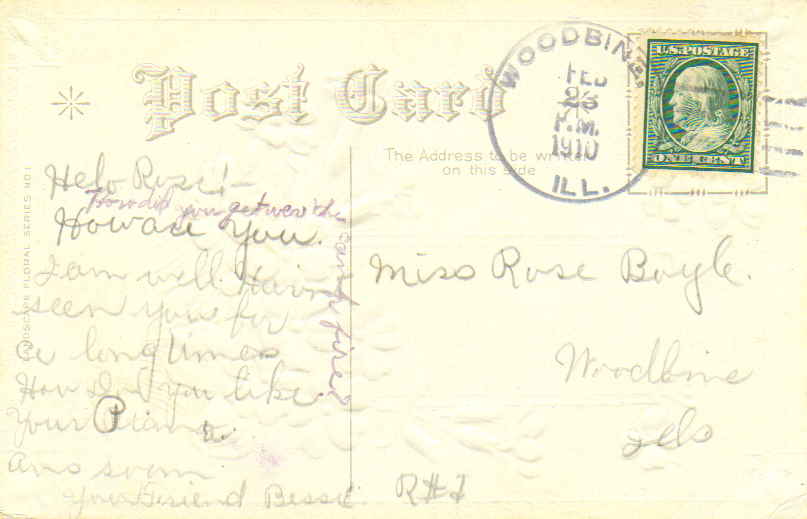 WOODBINE,
FEB
23
P.M.
1910
ILL.
U.S. POSTAGE
ONE CENT
Post Card
The Address to be written
on this side
LANDSCAPE FLORAL SERIES NO.1
Helo Rose!-
How did you get over the
camp fire?
How are you.
I am well. Havn't
seen you for
a long times
How do you like
Your Piano.
Ans soon
Your Friend Bessie.
R#1
Miss Rose Boyle.
Woodbine
Ills